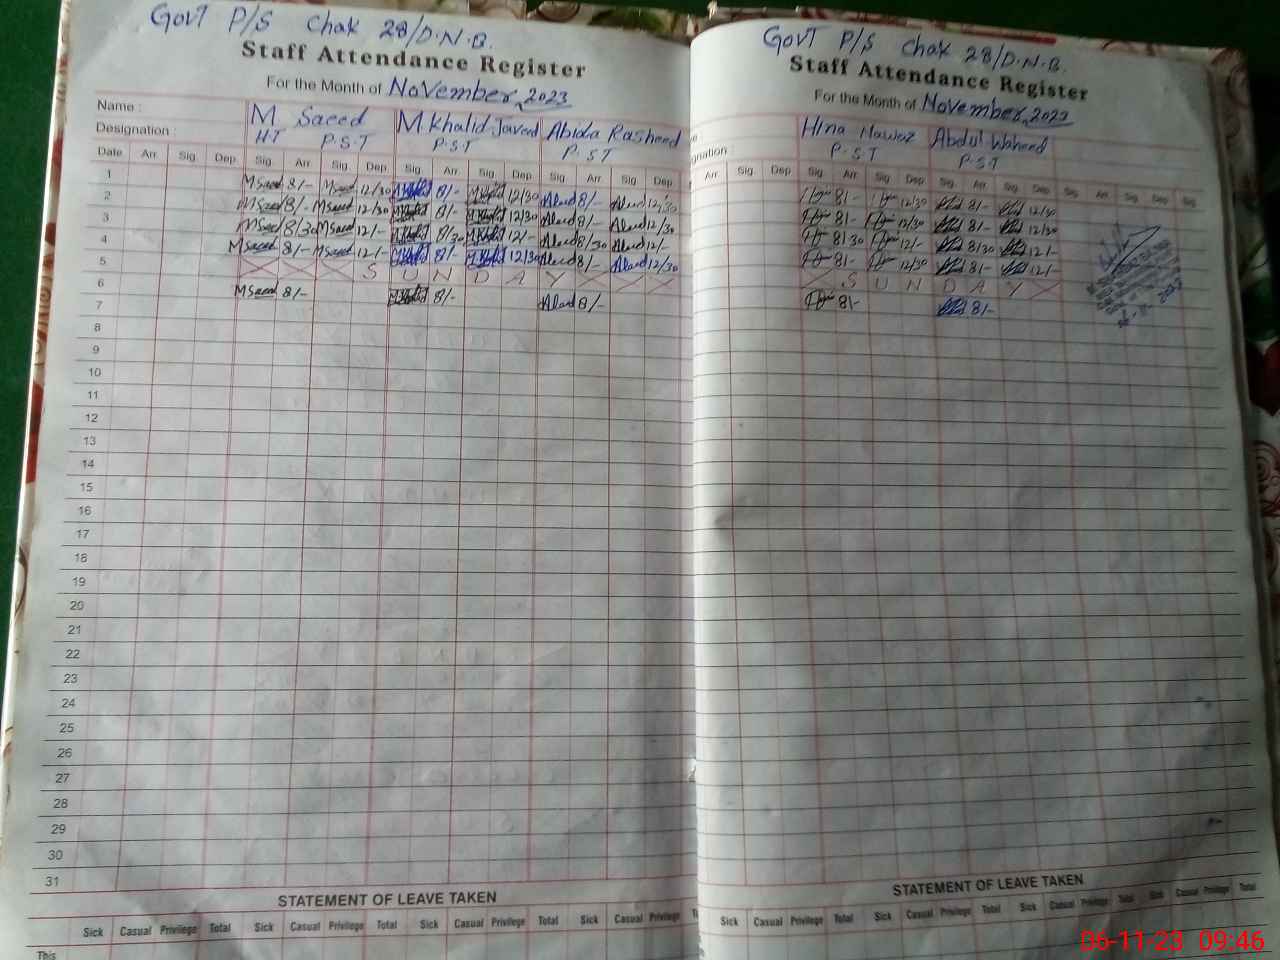 Govt P/S Chak 28/D.N.B.
Staff Attendance Register
For the Month of November, 2023
Name : M. Saeed M. Khalid Javeed Abida Rasheed
Designation : HT P.S.T P.S.T P.S.T
Date Arr Sig Dep Sig Arr Sig Dep Sig Arr Sig Dep Sig Arr Sig Dep
1 MSaeed 8/- MSaeed 12/30 8/- 12/30 8/- 12/30
2 MSaeed 8/- MSaeed 12/30 8/- 12/30 8/- 12/30
3 MSaeed 8/30 MSaeed 12/- 8/30 12/- 8/30 12/-
4 MSaeed 8/- MSaeed 12/- 8/- 12/30 8/- 12/30
5 S U N D A Y
6 MSaeed 8/- 8/- 8/-
7
8
9
10
11
12
13
14
15
16
17
18
19
20
21
22
23
24
25
26
27
28
29
30
31
STATEMENT OF LEAVE TAKEN
Sick Casual Privilege Total Sick Casual Privilege Total Sick Casual Privilege Total Sick Casual Privilege
This
Govt P/S Chak 28/D.N.B.
Staff Attendance Register
For the Month of November, 2023
e : Hina Nawaz Abdul Waheed
gnation : P.S.T P.S.T
Arr Sig Dep Sig Arr Sig Dep Sig Arr Sig Dep Sig Arr Sig Dep Sig
8/- 12/30 8/- 12/30
8/- 12/30 8/- 12/30
8/30 12/- 8/30 12/-
8/- 12/30 8/- 12/-
S U N D A Y
8/- 8/-
STATEMENT OF LEAVE TAKEN
Sick Casual Privilege Total Sick Casual Privilege Total Sick Casual Privilege Total Sick Casual Privilege Total
06-11-23 09:46